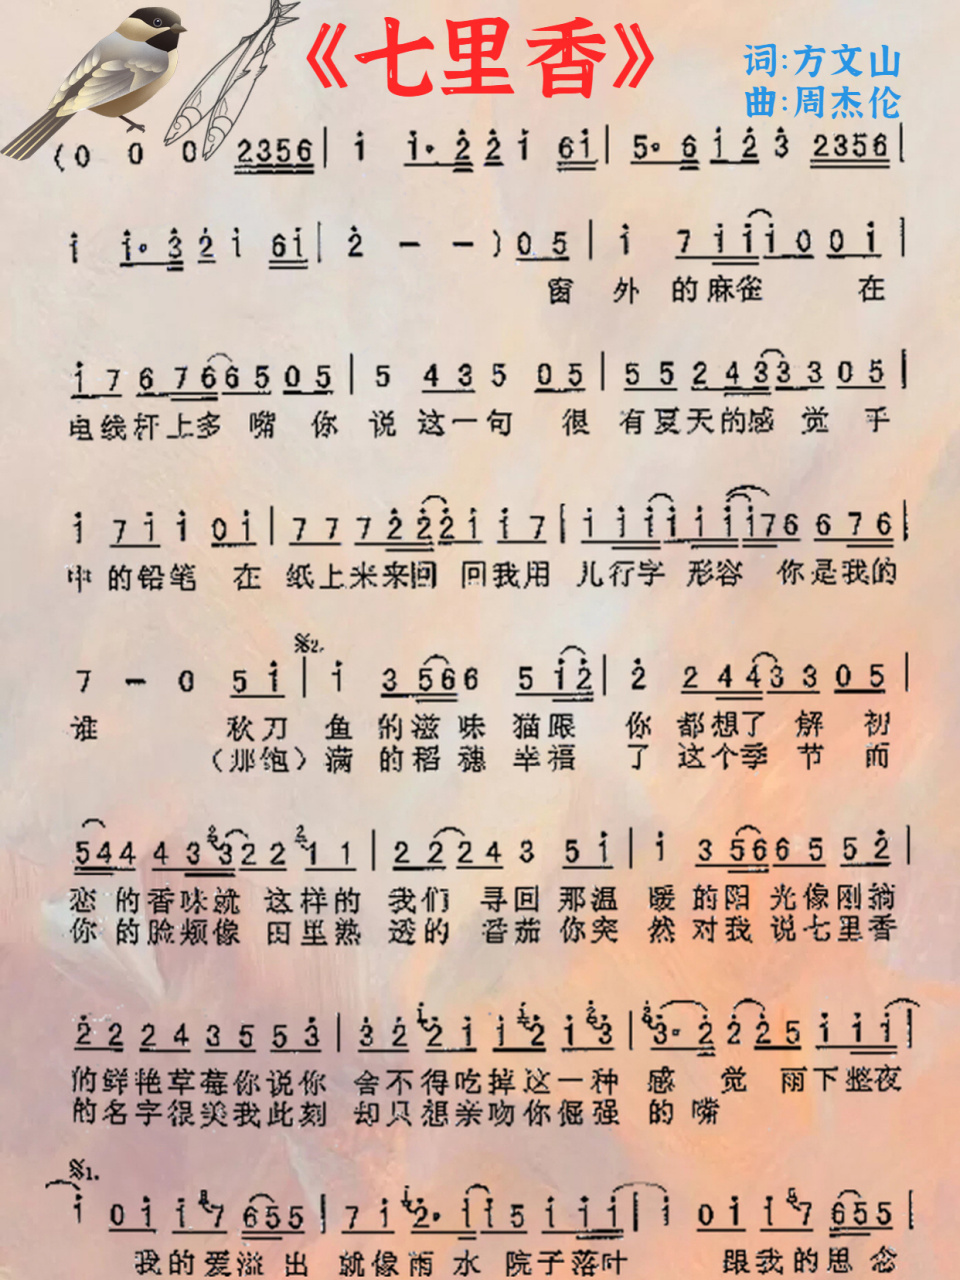 《七里香》
词:方文山
曲:周杰伦
(0 0 0 2356 | i i· 2 2 i 6i | 5· 6 i 2 3 2356 |
i i· 3 2 i 6i | 2 − − ) 0 5 | i 7 i i i 0 0 i |
窗 外 的麻雀 在
i 7 6 7 6 6 5 0 5 | 5 4 3 5 0 5 | 5 5 2 4 3 3 3 0 5 |
电线杆上多 嘴 你 说 这一句 很 有夏天的感 觉 手
i 7 i i 0 i | 7 7 7 2 2 2 i i 7 | i i i i i i i 7 6 6 7 6 |
中的铅笔 在 纸上来来回 回我用 几行字 形容 你是我的
7 − 0 5 i | i 3 5 6 6 6 5 i 2 | 2 2 4 4 3 3 0 5 |
谁 秋刀 鱼 的滋 味 猫跟 你 都想了 解 初
(那饱)满 的稻 穗 幸福 了 这个季 节 而
5 4 4 4 3 3 2 2 1 1 | 2 2 2 4 3 5 i | i 3 5 6 6 5 5 2 |
恋 的香味就 这样的 我们 寻回 那温 暖 的阳 光像刚摘
你 的脸颊像 田里熟 透的 番茄 你突 然 对我 说七里香
2 2 2 4 3 5 5 3 | 3 2 2 i i 2 i 3 | 3· 2 2 2 5 i i i |
的鲜艳草莓你说你 舍不得吃掉这一种 感 觉 雨下整夜
的名字很美我此刻 却只想亲吻你倔强 的 嘴
𝄋1.
i 0 i i 7 6 5 5 | 7 i 2· i i 5 i i i | i 0 i i 7 6 5 5 |
我的 爱溢 出 就像雨 水 院子落叶 跟我 的思 念